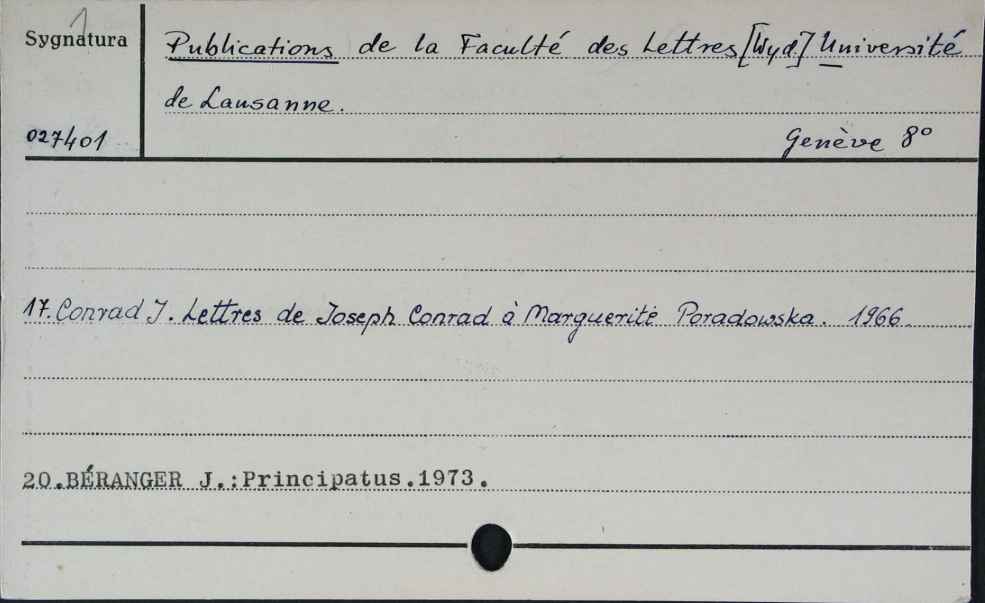 1
Sygnatura
Publications de la Faculté des Lettres [Wyd.] Université
de Lausanne.
027401
Genève 8°
17. Conrad J. Lettres de Joseph Conrad à Marguerite Poradowska. 1966.
20.BÉRANGER J.:Principatus.1973.